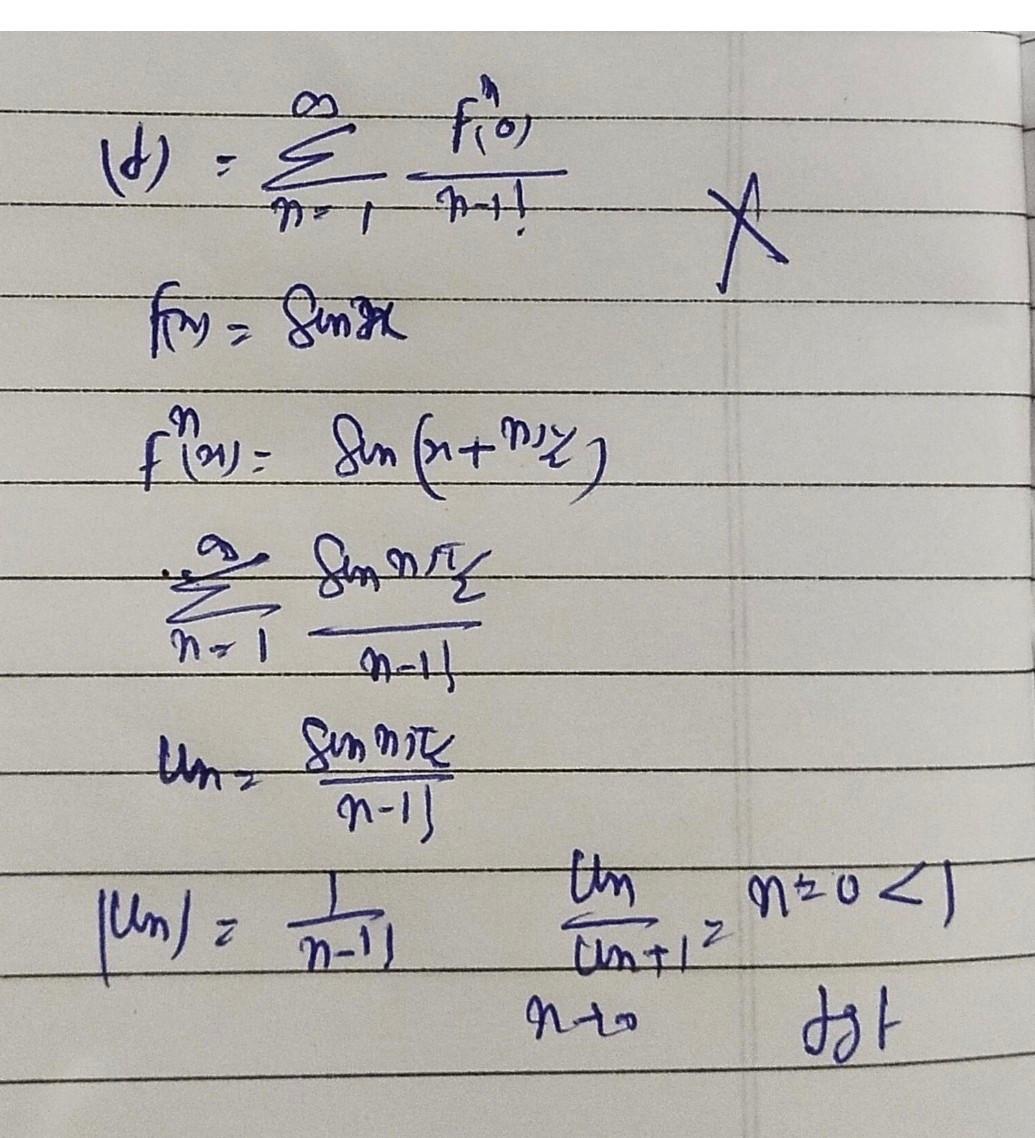 (d) = ∞Σn=1 fⁿ(0)/n-1!
f(x) = Sin x
fⁿ(x) = Sin (x + nπ/2)
∞Σn=1 Sin nπ/2 / n-1!
Un = Sin nπ/2 / n-1!
|Un| = 1/n-1! Un/Un+1 = n = 0 < 1
n→0